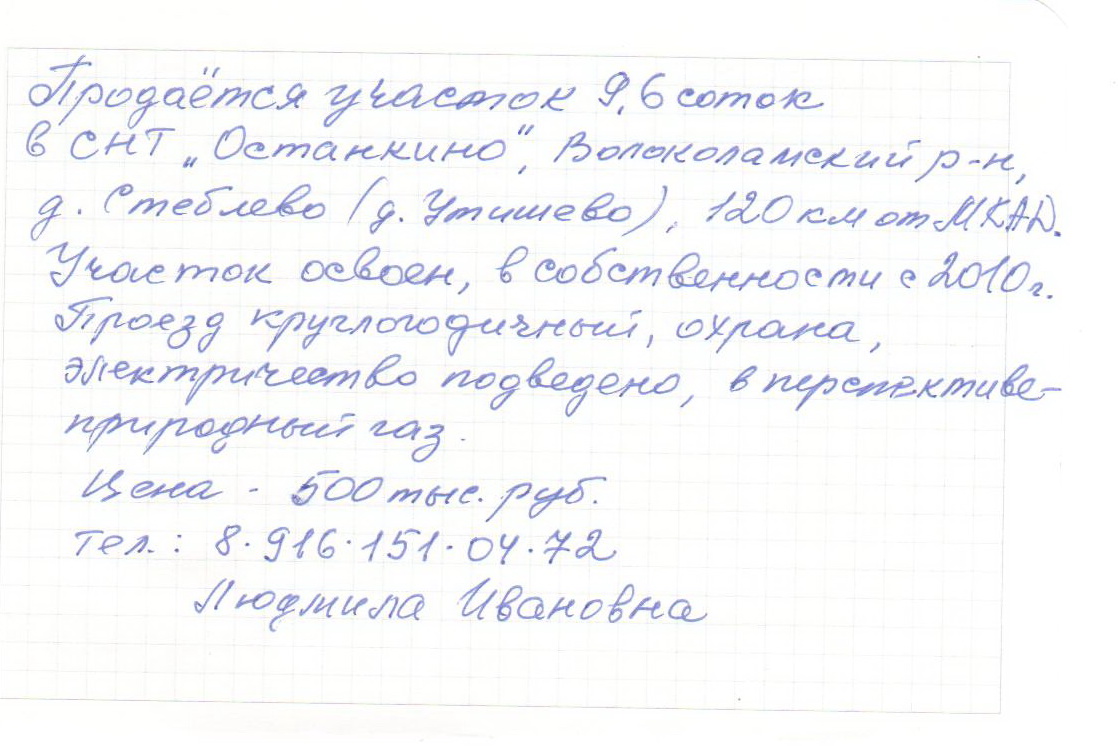 Продаётся участок 9,6 соток
в СНТ „Останкино", Волоколамский р-н,
д. Стеблево (д. Утишево), 120 км от МКАД.
Участок освоен, в собственности с 2010 г.
Проезд круглогодичный, охрана,
электричество подведено, в перспективе-
природный газ.
Цена - 500 тыс. руб.
тел.: 8·916·151·04·72
Людмила Ивановна